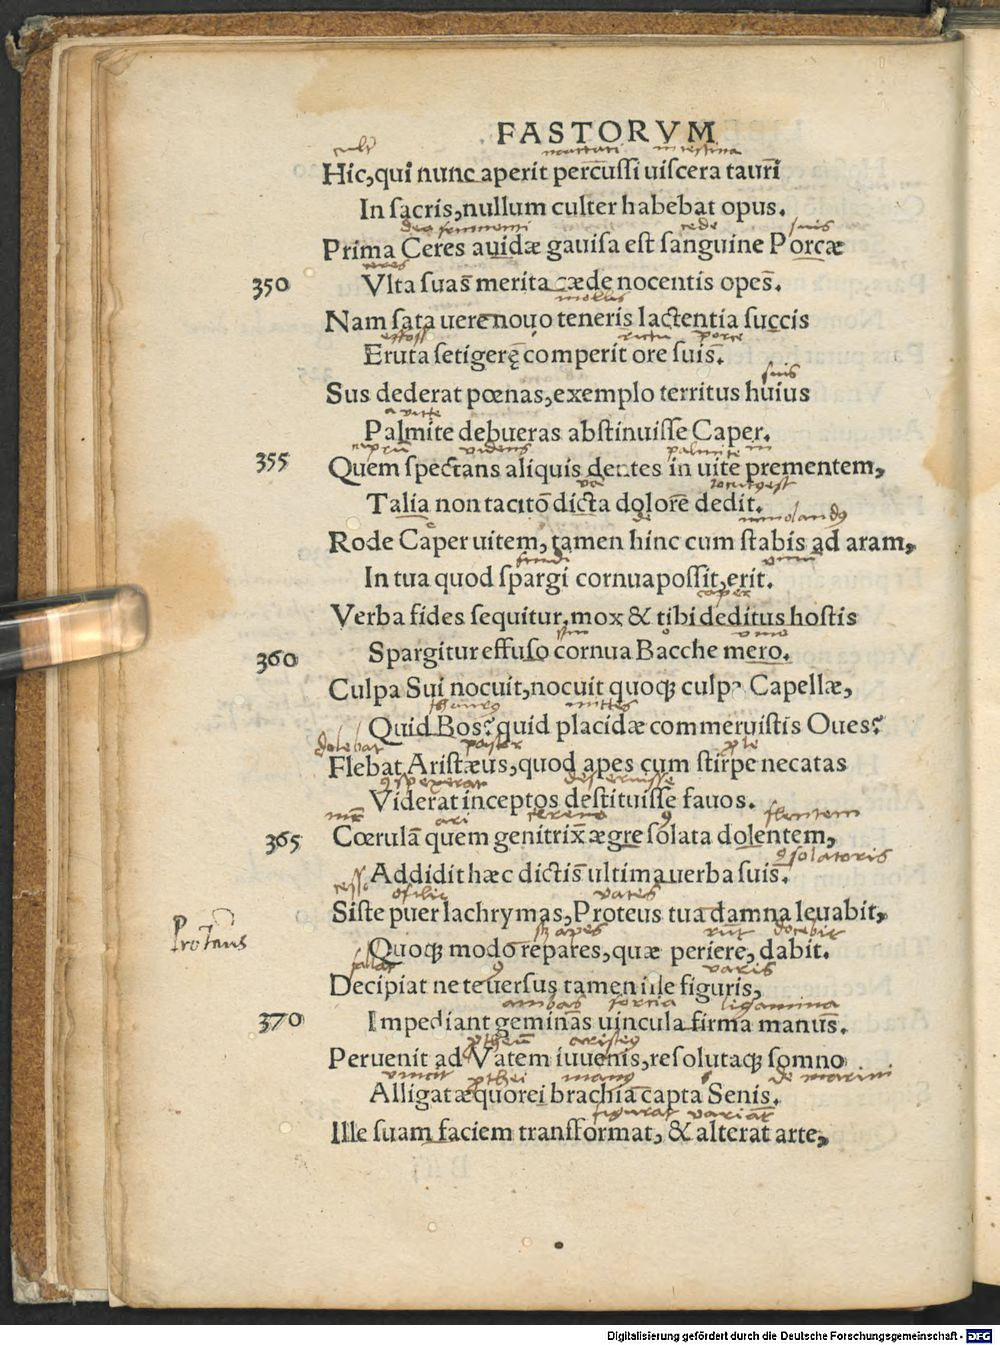 FASTORVM
Hic, qui nunc aperit percussi uiscera tauri
mactati intestina
In sacris, nullum culter habebat opus.
Prima Ceres auidæ gauisa est sanguine Porcæ
cede suis
350 Vlta suas merita cæde nocentis opes.
ceres
Nam sata uere nouo teneris lactentia succis
mollis
Eruta setigeræ comperit ore suis.
porce
Sus dederat pœnas, exemplo territus huius
suis
Palmite debueras abstinuisse Caper.
a vitte
355 Quem spectans aliquis dentes in uite prementem,
videns palmite
Talia non tacito dicta dolore dedit.
Rode Caper uitem, tamen hinc cum stabis ad aram,
In tua quod spargi cornua possit, erit.
Verba fides sequitur, mox & tibi deditus hostis
caper
360 Spargitur effuso cornua Bacche mero.
vino
Culpa Sui nocuit, nocuit quoq; culpa Capellæ,
Quid Bos? quid placidæ commeruistis Oues?
mittes
Flebat Aristæus, quod apes cum stirpe necatas
dolebat pastor
Viderat inceptos destituisse fauos.
deseruisse
365 Cœrula quem genitrix ægre solata dolentem,
flentem
Addidit hæc dictis ultima uerba suis.
Siste puer lachrymas, Proteus tua damna leuabit,
vates
Protæus
Quoq; modo repares, quæ periere, dabit.
apes docebit
Decipiat ne te uersus tamen ille figuris,
varis
370 Impediant geminas uincula firma manus.
ambas fortia ligamina
Peruenit ad Vatem iuuenis, resolutaq; somno
Alligat æquorei brachia capta Senis.
Ille suam faciem transformat, & alterat arte,
figurat variat
Digitalisierung gefördert durch die Deutsche Forschungsgemeinschaft - DFG